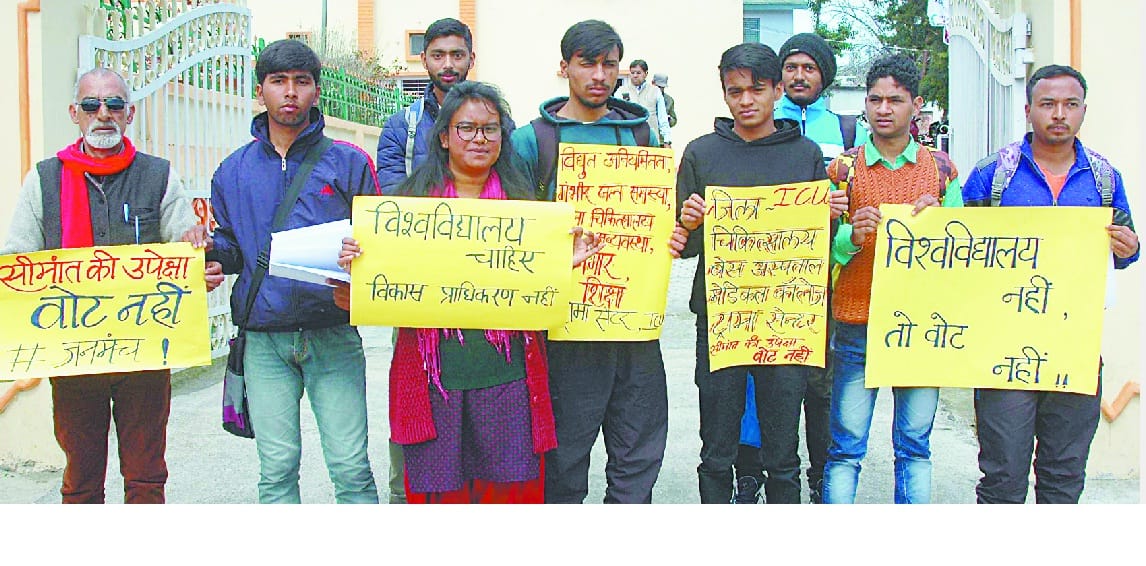 सीमांत की उपेक्षा
वोट नहीं
# जनमंच !
विश्वविद्यालय
चाहिए
विकास प्राधिकरण नहीं
विद्युत अनियमितता,
गंभीर जल समस्या,
चिकित्सालय
व्यवस्था,
शिक्षा
सेंटर ICU
जिला - ICU
चिकित्सालय
बेस अस्पताल
मेडिकल कॉलेज
ट्रामा सेन्टर
सीमांत की उपेक्षा
वोट नहीं
विश्वविद्यालय
नहीं,
तो वोट
नहीं !!